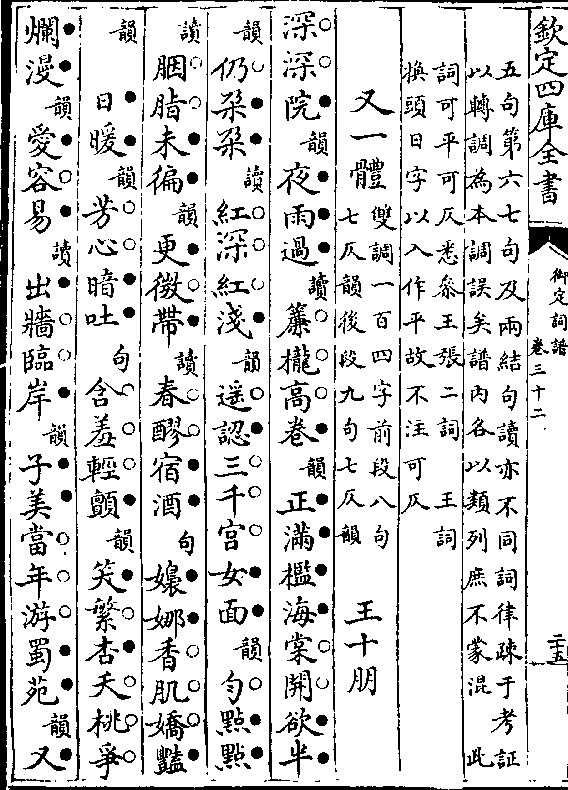 欽定四庫全書
御定詞譜
卷三十二
二五
五句第六七句及兩結句讀亦不同詞律疎于考証
以轉調為本調誤矣譜內各以類列庶不蒙混 此
詞可平可仄悉叅王張二詞 王詞
換頭日字以入作平故不注可仄
又一體 雙調一百四字前段八句
七仄韻後段九句七仄韻 王十朋
深深院韻夜雨過讀簾櫳高卷韻正滿檻海棠開欲半
韻仍朶朶讀紅深紅淺韻遥認三千宫女面韻勻點點
讀胭脂未徧韻更微帶讀春醪宿酒句嬝娜香肌嬌豔
韻 日暖韻芳心暗吐句含羞輕顫韻笑繁杏夭桃爭
爛漫韻愛容易讀出牆臨岸韻子美當年游蜀苑韻又